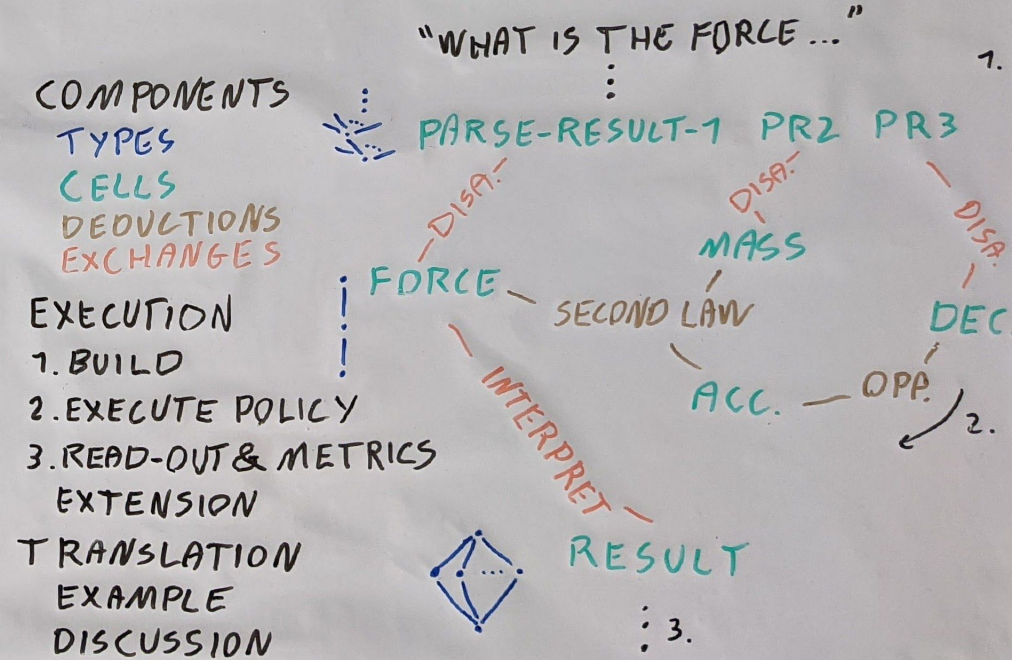 "WHAT IS THE FORCE..."
1.
COMPONENTS
TYPES
CELLS
DEDUCTIONS
EXCHANGES
EXECUTION
1. BUILD
2. EXECUTE POLICY
3. READ-OUT & METRICS
EXTENSION
TRANSLATION
EXAMPLE
DISCUSSION
PARSE-RESULT-1 PR2 PR3
DISA.
DISA.
DISA.
MASS
FORCE
SECOND LAW
DEC
ACC.
OPP.
2.
INTERPRET
RESULT
3.